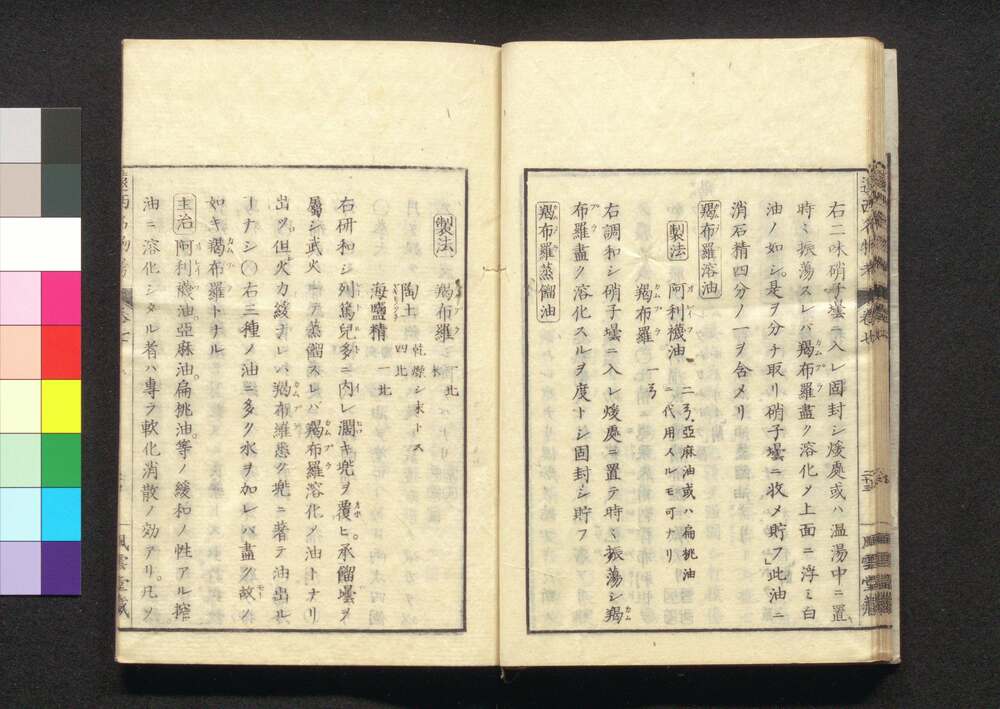 右二味硝子壜ニ入レ固封シ煖處或ハ温湯中ニ置
時〻振蕩スレバ羯布羅盡ク溶化シ上面ニ浮ミ白
油ノ如シ是ヲ分チ取リ硝子壜ニ收メ貯フ此油ニ
消石精四分ノ一ヲ含メリ
羯布羅溶油
製法 阿利襪油 二ゟ、亞麻油或ハ扁桃油
代用スルモ可ナリ
羯布羅 一ゟ
右調和シ硝子壜ニ入レ煖處ニ置テ時〻振蕩シ羯
布羅盡ク溶化スルヲ度トシ固封シ貯フ
羯布羅蒸餾油
製法 羯布羅
陶土 乾燥シ末トス
四
海鹽精 一
右研和シ列篤兒多ニ内レ濶キ兠ヲ覆ヒ承餾壜ヲ
屬シ武火ニテ蒸餾スレバ羯布羅溶化シ油トナリ
出ヅ但火力緩ナレバ羯布羅悉ク兠ニ著テ油出ル
ナシ〇右三種ノ油ニ多ク水ヲ加レバ盡ク故ノ
如キ羯布羅トナル
主治 阿利襪油。亞麻油。扁桃油。等ノ緩和ノ性アル搾
油ニ溶化シタル者ハ專ラ軟化消散ノ効アリ。凡ソ
風雲堂藏